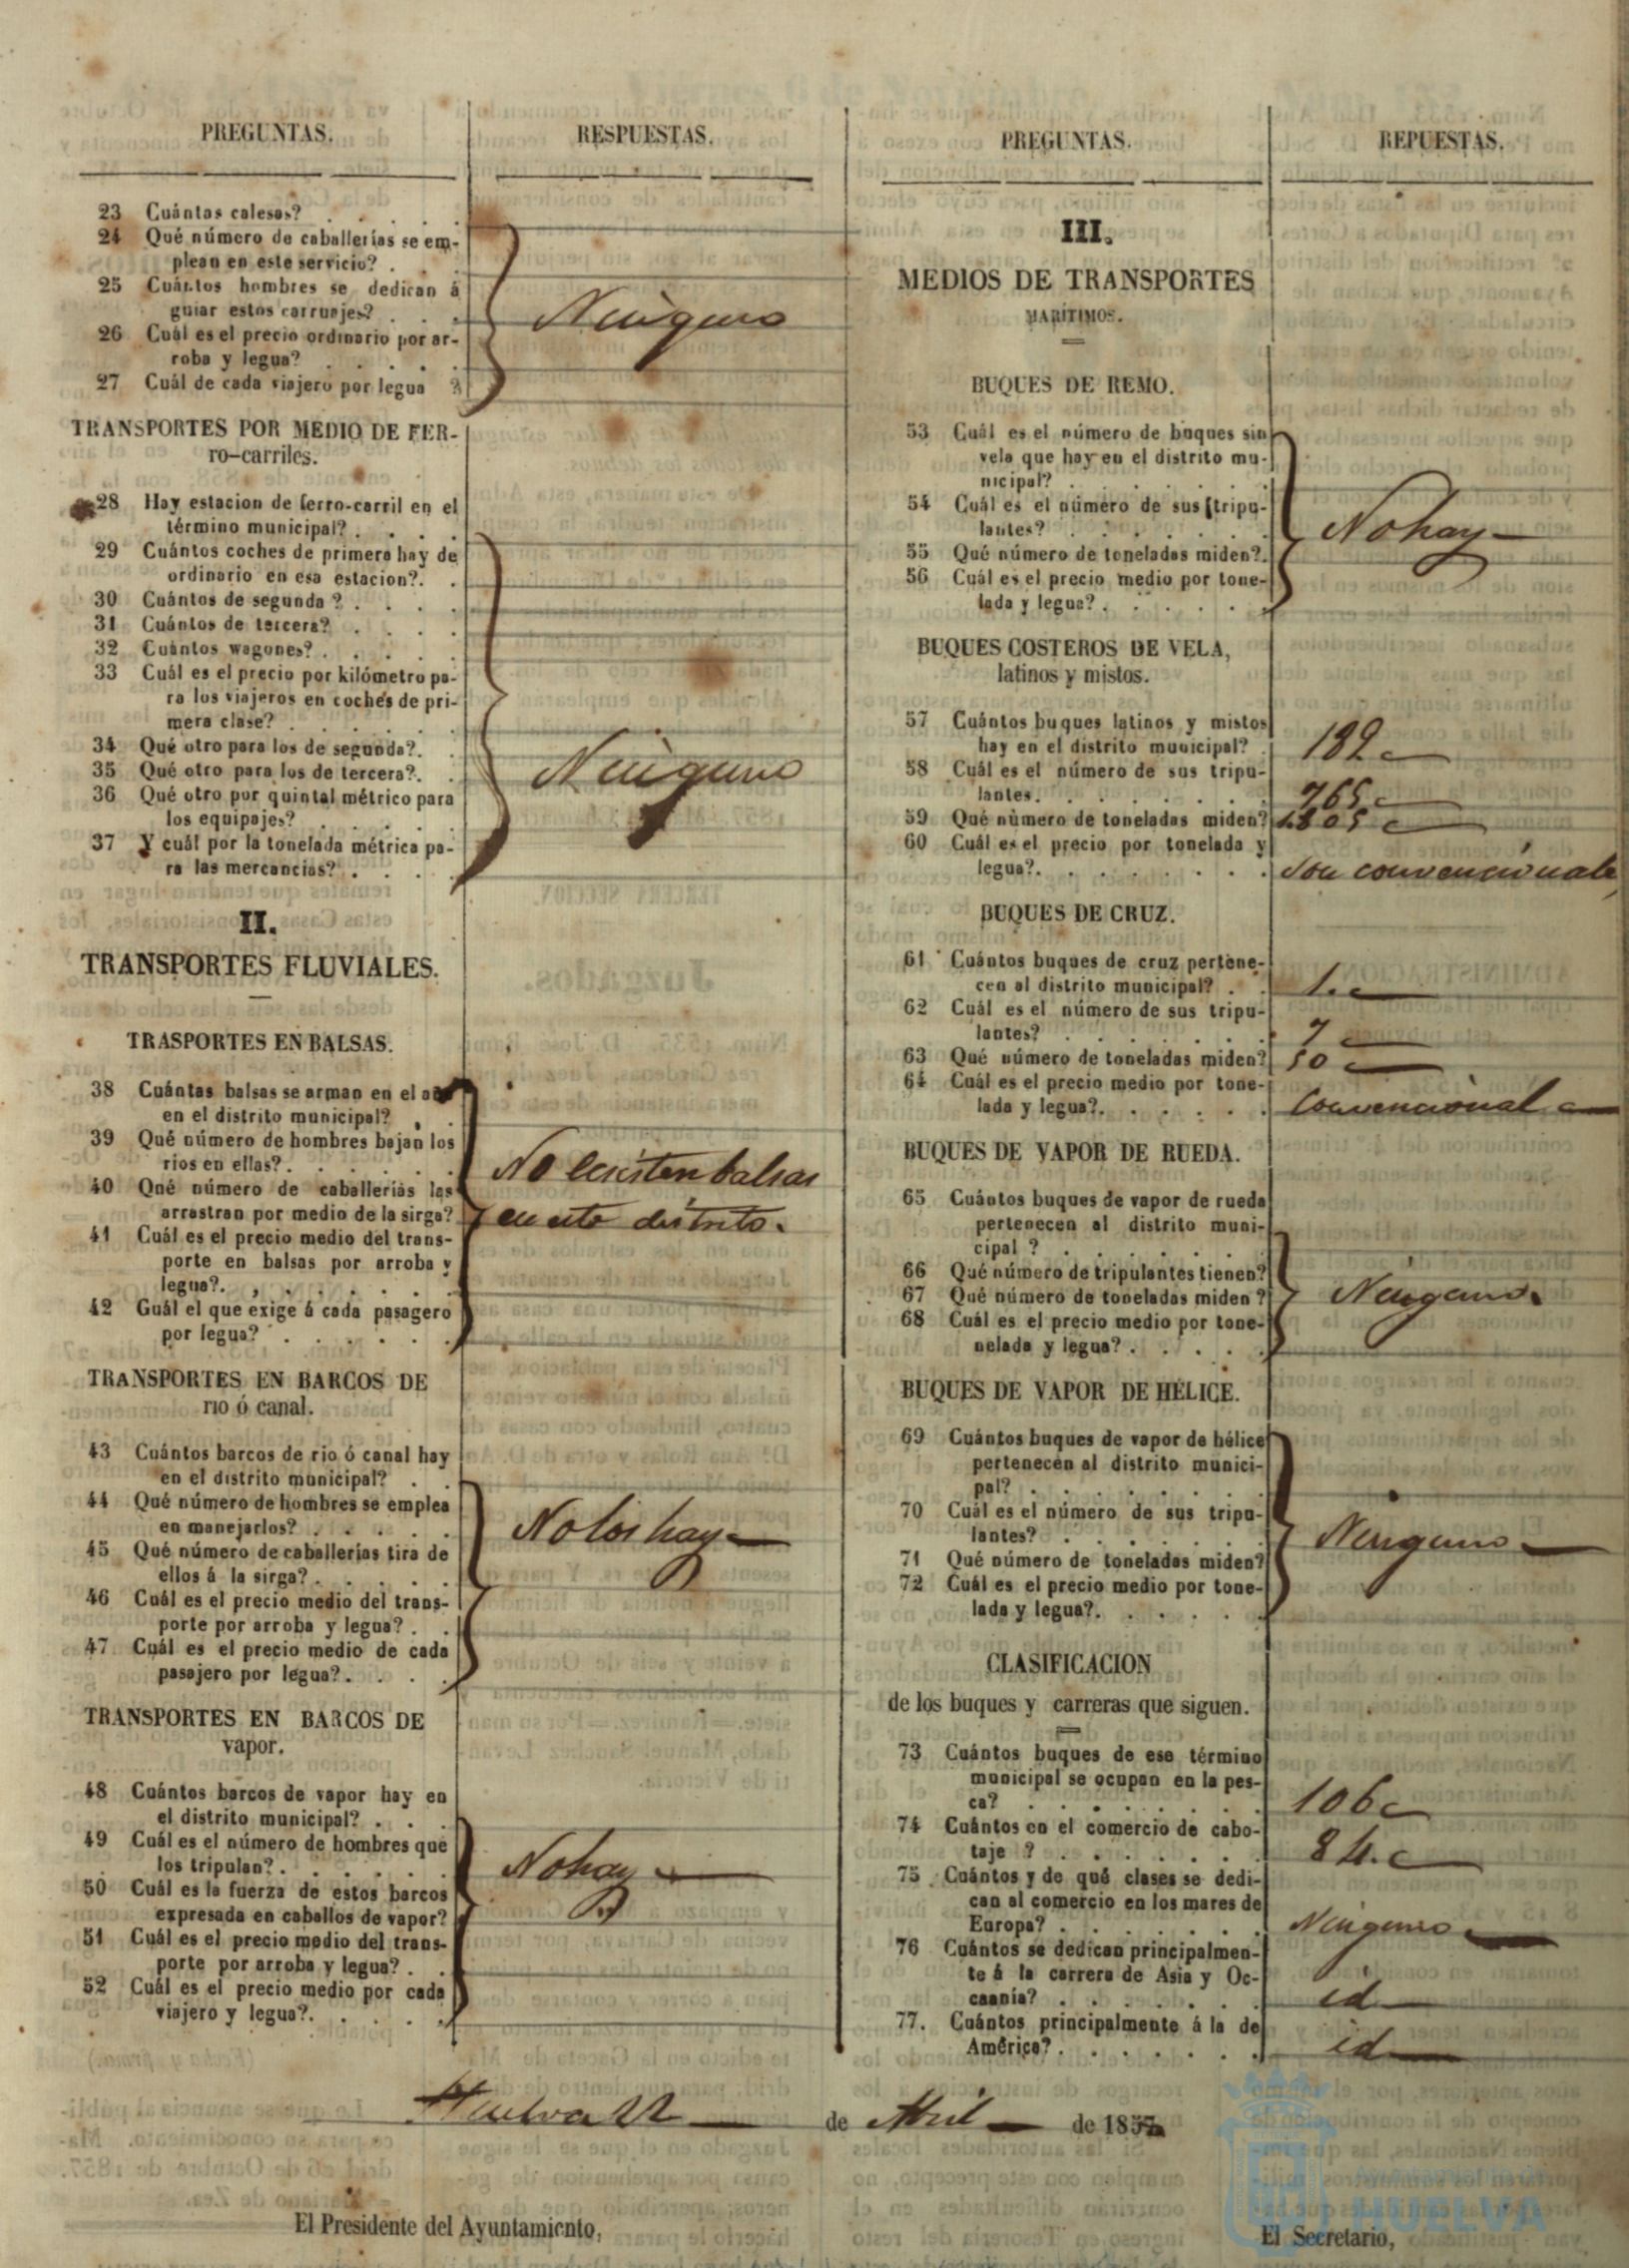 PREGUNTAS.
RESPUESTAS.
23 Cuántas calesas? . . . . .
24 Qué número de caballerías se em-
plean en este servicio? . . .
25 Cuántos hombres se dedican á
guiar estos carruajes? . . .
26 Cuál es el precio ordinario por ar-
roba y legua? . . . . .
27 Cuál de cada viajero por legua ?
Ninguno
TRANSPORTES POR MEDIO DE FER-
ro-carriles.
28 Hay estacion de ferro-carril en el
término municipal? . . . .
29 Cuántos coches de primera hay de
ordinario en esa estacion?. .
30 Cuántos de segunda ? . . . .
31 Cuántos de tercera? . . . .
32 Cuántos wagones? . . . . .
33 Cuál es el precio por kilómetro pa-
ra los viajeros en coches de pri-
mera clase? . . . . .
34 Qué otro para los de segunda?. .
35 Qué otro para los de tercera?. .
36 Qué otro por quintal métrico para
los equipajes? . . . . .
37 Y cuál por la tonelada métrica pa-
ra las mercancias? . . . .
Ninguno
II.
TRANSPORTES FLUVIALES.
TRASPORTES EN BALSAS.
38 Cuántas balsas se arman en el año
en el distrito municipal? . .
39 Qué número de hombres bajan los
rios en ellas? . . . . . .
40 Qué número de caballerías las
arrastran por medio de la sirga?
41 Cuál es el precio medio del trans-
porte en balsas por arroba y
legua?. , . . . . .
42 Guál el que exige á cada pasagero
por legua? . . . . . .
No ecsisten balsas
en este distrito.
TRANSPORTES EN BARCOS DE
rio ó canal.
43 Cuántos barcos de rio ó canal hay
en el distrito municipal? . .
44 Qué número de hombres se emplea
en manejarlos? . . . . .
45 Qué número de caballerías tira de
ellos á la sirga? . . . . .
46 Cuál es el precio medio del trans-
porte por arroba y legua? . .
47 Cuál es el precio medio de cada
pasajero por legua? . . . .
No los hay
TRANSPORTES EN BARCOS DE
vapor.
48 Cuántos barcos de vapor hay en
el distrito municipal? . . .
49 Cuál es el número de hombres que
los tripulan? . . . . . .
50 Cuál es la fuerza de estos barcos
expresada en caballos de vapor?
51 Cuál es el precio medio del trans-
porte por arroba y legua? . .
52 Cuál es el precio medio por cada
viajero y legua?. . . . .
No hay
PREGUNTAS.
REPUESTAS.
III.
MEDIOS DE TRANSPORTES
MARÍTIMOS.
BUQUES DE REMO.
53 Cuál es el número de buques sin
vela que hay en el distrito mu-
nicipal? . . . . . .
54 Cuál es el número de sus tripu-
lantes? . . . . . .
55 Qué número de toneladas miden?.
56 Cuál es el precio medio por tone-
lada y legua? . . . . . .
No hay
BUQUES COSTEROS DE VELA,
latinos y mistos.
57 Cuántos buques latinos y mistos
hay en el distrito municipal? .
182
58 Cuál es el número de sus tripu-
lantes. . . . . . . .
765
59 Qué número de toneladas miden?
1805
60 Cuál es el precio por tonelada y
legua?. . . . . . . .
Son convencionale
BUQUES DE CRUZ.
61 Cuántos buques de cruz pertene-
cen al distrito municipal? . .
1.
62 Cuál es el número de sus tripu-
lantes? . . . . . . .
7
63 Qué número de toneladas miden?
50
64 Cuál es el precio medio por tone-
lada y legua?. . . . . .
Convencional
BUQUES DE VAPOR DE RUEDA.
65 Cuántos buques de vapor de rueda
pertenecen al distrito muni-
cipal ? . . . . . . .
66 Qué número de tripulantes tienen?
67 Qué número de toneladas miden ?
68 Cuál es el precio medio por tone-
nelada y legua? . . . . .
Ninguno.
BUQUES DE VAPOR DE HÉLICE.
69 Cuántos buques de vapor de hélice
pertenecen al distrito munici-
pal? . . . . . . .
70 Cuál es el número de sus tripu-
lantes? . . . . . . .
71 Qué número de toneladas miden?
72 Cuál es el precio medio por tone-
lada y legua?. . . . . .
Ninguno
CLASIFICACION
de los buques y carreras que siguen.
73 Cuántos buques de ese término
municipal se ocupan en la pes-
ca? . . . . . . .
106
74 Cuántos en el comercio de cabo-
taje ? . . . . . . .
84.
75 Cuántos y de qué clases se dedi-
can al comercio en los mares de
Europa? . . . . . . .
Ninguno
76 Cuántos se dedican principalmen-
te á la carrera de Asia y Oc-
caania? . . . . . . .
id
77. Cuántos principalmente á la de
América? . . . . . . .
id
Huelva 22 de Abril de 1857
El Presidente del Ayuntamiento,
El Secretario,
HUELVA